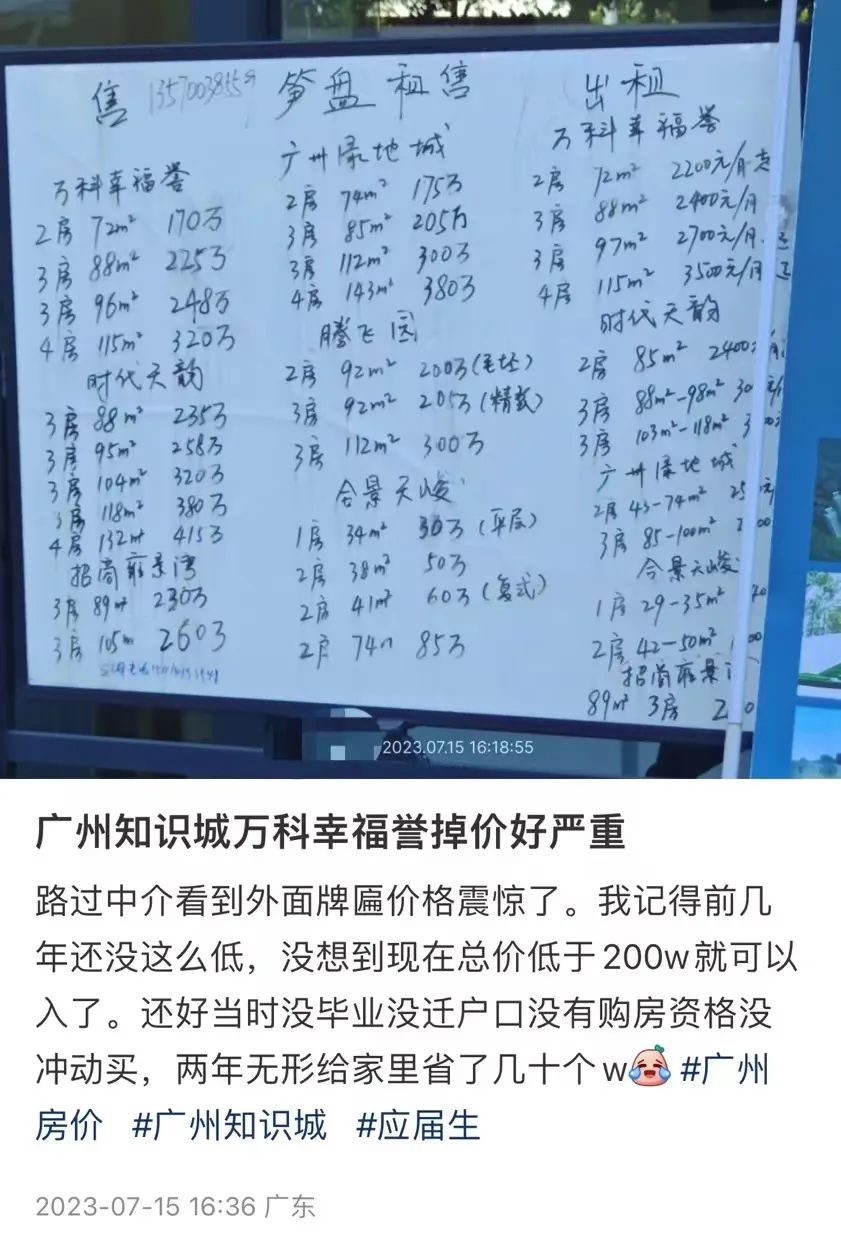 售 笋盘 租售
万科幸福誉
2房 72m² 170万
3房 88m² 225万
3房 96m² 248万
4房 115m² 320万
时代天韵
3房 88m² 235万
3房 95m² 258万
3房 104m² 320万
3房 118m² 380万
4房 132m² 415万
招商雍景湾
3房 89m² 230万
3房 105m 260万
广州绿地城
2房 74m² 175万
3房 85m² 205万
3房 112m² 300万
4房 143m² 380万
腾飞园
2房 92m² 200万(毛坯)
3房 92m² 205万(精装)
3房 112m² 300万
合景天峻
1房 34m² 30万(平层)
2房 38m² 50万
2房 41m² 60万(复式)
2房 74m 85万
出租
万科幸福誉
2房 72m² 2200元/月
3房 88m² 2400元/月
3房 97m² 2700元/月
4房 115m² 3500元/月
时代天韵
2房 85m² 2400
3房 88m²-98m²
3房 103m²-118m²
广州绿地城
2房 43-74m²
3房 85-100m²
合景天峻
1房 29-35m²
2房 42-50m²
招商雍景
89m² 3房
2023.07.15 16:18:55
广州知识城万科幸福誉掉价好严重
路过中介看到外面牌匾价格震惊了。我记得前几
年还没这么低，没想到现在总价低于200w就可以
入了。还好当时没毕业没迁户口没有购房资格没
冲动买，两年无形给家里省了几十个w #广州
房价 #广州知识城 #应届生
2023-07-15 16:36 广东